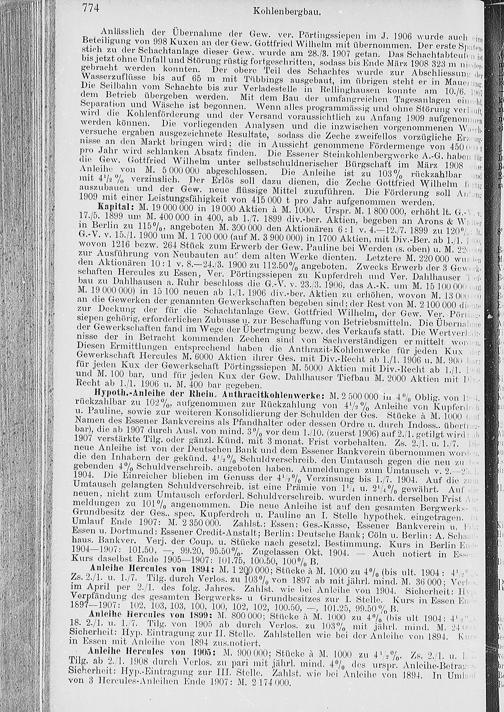 774
Kohlenbergbau.
Anlässlich der Übernahme der Gew. ver. Pörtingssiepen im J. 1906 wurde auch
Beteiligung von 998 Kuxen an der Gew. Gottfried Wilhelm mit übernommen. Der erste
stich zu der Schachtanlage dieser Gew. wurde am 28./3. 1907 getan. Das Schachtabteufen
bis jetzt ohne Unfall und Störung rüstig fortgeschritten, sodass bis Ende März 1908 323 m
gebracht werden konnten. Der obere Teil des Schachtes wurde zur Abschliessung
Wasserzuflüsse bis auf 65 m mit Tübbings ausgebaut, im übrigen steht er in
Die Seilbahn vom Schachte bis zur Verladestelle in Rellinghausen konnte am 10./6.
dem Betrieb übergeben werden. Mit dem Bau der umfangreichen Tagesanlagen
Separation und Wäsche ist begonnen. Wenn alles programmässig und ohne Störung
wird die Kohlenförderung und der Versand voraussichtlich zu Anfang 1909 aufgenommen
werden können. Die vorliegenden Analysen und die inzwischen vorgenommenen
versuche ergaben ausgezeichnete Resultate, sodass die Zeche zweifellos vorzügliche
nisse an den Markt bringen wird; die in Aussicht genommene Fördermenge von 450
pro Jahr wird schlanken Absatz finden. Die Essener Steinkohlenbergwerke A.-G. haben
die Gew. Gottfried Wilhelm unter selbstschuldnerischer Bürgschaft im März 1908
Anleihe von M. 5 000 000 abgeschlossen. Die Anleihe ist zu 103% rückzahlbar
mit 4½% verzinslich. Der Erlös soll dazu dienen, die Zeche Gottfried Wilhelm
auszubauen und der Gew. neue flüssige Mittel zuzuführen. Die Förderung soll
1909 mit einer Leistungsfähigkeit von 415 000 t pro Jahr aufgenommen werden.
Kapital: M. 19 000 000 in 19 000 Aktien à M. 1000. Urspr. M. 1 800 000, erhöht lt. G.-V.
17./5. 1899 um M. 400 000 in 400, ab 1./7. 1899 div.-ber. Aktien, begeben an Arons &
in Berlin zu 115%; angeboten M. 300 000 den Aktionären 6:1 v. 4.—12./7. 1899 zu 120%
G.-V. v. 15./1. 1900 um M. 1 700 000 (auf M. 3 900 000) in 1700 Aktien, mit Div.-Ber. ab 1./1.
wovon 1216 bezw. 264 Stück zum Erwerb der Gew. Pauline bei Werden (s. oben) u. M.
zur Ausführung von Neubauten auf dem alten Werke dienten. Letztere M. 220 000
den Aktionären 10:1 v. 8.—24./3. 1900 zu 112.50% angeboten. Zwecks Erwerb der 3
schaften Hercules zu Essen, Ver. Pörtingssiepen zu Kupferdreh und Ver. Dahlhauser
bau zu Dahlhausen a. Ruhr beschloss die G.-V. v. 23./3. 1906, das A.-K. um M. 15 100 000
M. 19 000 000) in 15 100 neuen ab 1./1. 1906 div.-ber. Aktien zu erhöhen, wovon M. 13 000
an die Gewerken der genannten Gewerkschaften begeben sind; der Rest von M. 2 100 000
zur Deckung der für die Schachtanlage Gew. Gottfried Wilhelm, der Gew. Ver.
siepen gehörig, erforderlichen Zubusse u. zur Beschaffung von Betriebsmitteln. Die
der Gewerkschaften fand im Wege der Übertragung bezw. des Verkaufs statt. Die
nisse der in Betracht kommenden Zechen sind von Sachverständigen ermittelt
Diesen Ermittelungen entsprechend haben die Anthrazit-Kohlenwerke für jeden Kux
Gewerkschaft Hercules M. 6000 Aktien ihrer Ges. mit Div.-Recht ab 1./1. 1906 u. M.
für jeden Kux der Gewerkschaft Pörtingssiepen M. 5000 Aktien mit Div.-Recht ab 1./1.
und M. 100 bar, und für jeden Kux der Gew. Dahlhauser Tiefbau M. 2000 Aktien mit
Recht ab 1./1. 1906 u. M. 400 bar gegeben.
Hypoth.-Anleihe der Rhein. Anthracitkohlenwerke: M. 2 500 000 in 4% Oblig. von
rückzahlbar zu 102%, aufgenommen zur Rückzahlung von 4½% Anleihe von Kupferdreh
u. Pauline, sowie zur weiteren Konsolidierung der Schulden der Ges. Stücke à M. 1000
Namen des Essener Bankvereins als Pfandhalter oder dessen Ordre u. durch Indoss.
bar), die ab 1907 durch Ausl. von mind. 3% vor dem 1./10. (zuerst 1906) auf 2./1. getilgt wird
1907 verstärkte Tilg. oder gänzl. Künd. mit 3monat. Frist vorbehalten. Zs. 2./1. u. 1./7.
neue Anleihe ist von der Deutschen Bank und dem Essener Bankverein übernommen
die den Inhabern der gekünd. 4½% Schuldverschreib. den Umtausch gegen die neu zu
gebenden 4% Schuldverschreib. angeboten haben. Anmeldungen zum Umtausch v. 2.—
1904. Die Einreicher blieben im Genuss der 4½% Verzinsung bis 1./7. 1904. Auf die
Umtausch gelangten Schuldverschreib. ist eine Prämie von 1¼ u. 2¼% gewährt. Auf
neuen, nicht zum Umtausch erforderl. Schuldverschreib. wurden innerh. derselben Frist
meldungen zu 101% angenommen. Die neue Anleihe ist auf den gesamten Bergwerks-
Grundbesitz der Ges., spec. Kupferdreh u. Pauline an I. Stelle hypothek. eingetragen.
Umlauf Ende 1907: M. 2 350 000. Zahlst.: Essen: Ges.-Kasse, Essener Bankverein u.
Essen u. Dortmund: Essener Credit-Anstalt; Berlin: Deutsche Bank; Cöln u. Berlin: A. Schaaff-
haus. Bankver. Verj. der Coup. u. Stücke nach gesetzl. Bestimmung. Kurs in Berlin
1904—1907: 101.50, —, 99.20, 95.50%. Zugelassen Okt. 1904. — Auch notiert in
Kurs daselbst Ende 1905—1907: 101.75, 100.50, 100% B.
Anleihe Hercules von 1894: M. 1 200 000; Stücke à M. 1000 zu 4% (bis ult. 1904:
Zs. 2./1. u. 1./7. Tilg. durch Verlos. zu 103% von 1897 ab mit jährl. mind. M. 36 000;
im April per 2./1. des folg. Jahres. Zahlst. wie bei Anleihe von 1904. Sicherheit:
Verpfändung des gesamten Bergwerks- u. Grundbesitzes zur I. Stelle. Kurs in Essen
1897—1907: 102, 103, 103, 100, 100, 102, 102, 100.50, —, 101.25, 99.50% B.
Anleihe Hercules von 1899: M. 800 000; Stücke à M. 1000 zu 4% (bis ult 1904:
18. 2./1. u. 1./7. Tilg. von 1905 ab durch Verlos. zu 103% mit jährl. mind. M.
Sicherheit: Hyp. Eintragung zur II. Stelle. Zahlstellen wie bei der Anleihe von 1894.
in Essen mit Anleihe von 1894 zus.notiert.
Anleihe Hercules von 1905: M. 900 000; Stücke à M. 1000 zu 4½%. Zs. 2./1. u.
Tilg. ab 2./1. 1908 durch Verlos. zu pari mit jährl. mind. 4% des urspr. Anleihe-
Sicherheit: Hyp.-Eintragung zur III. Stelle. Zahlst. wie bei Anleihe von 1894. In
von 3 Hercules-Anleihen Ende 1907: M. 2 174 000.